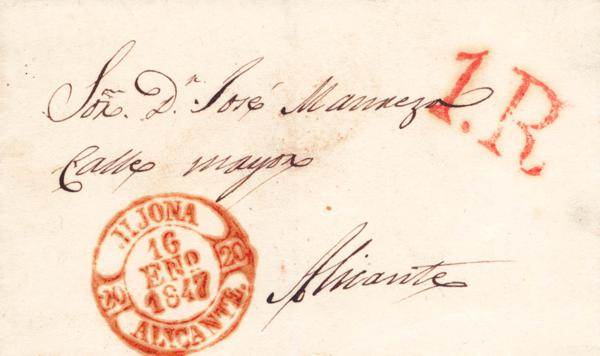 1.R
Sor. Dn. José
Calle mayor
Alicante
JIJONA
16
ENO
1847
20
20
ALICANTE.